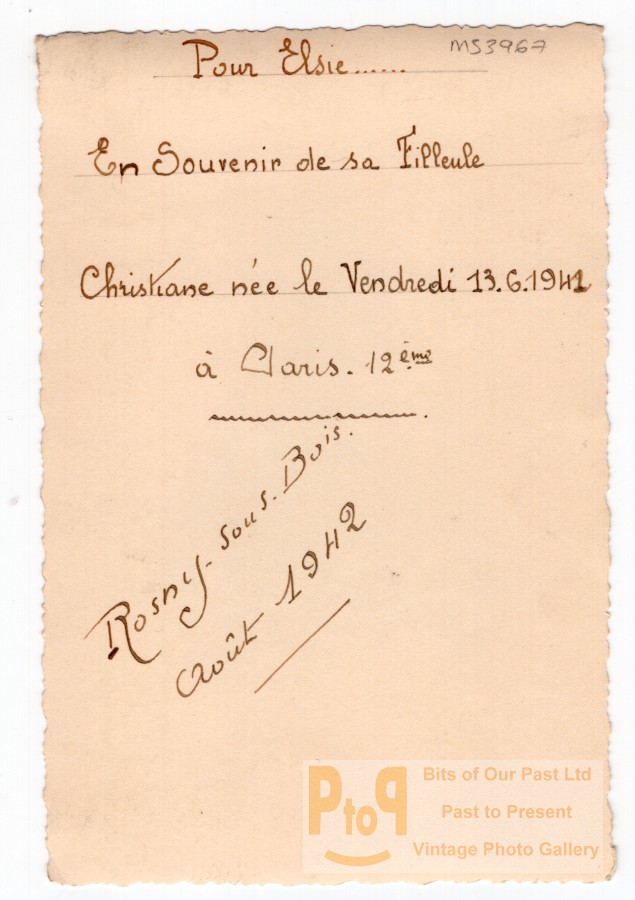 Pour Elsie......
MS3967
En Souvenir de sa Filleule
Christiane née le Vendredi 13.6.1941
à Paris. 12ème
Rosny-sous-Bois.
Août 1942
PtoP
Bits of Our Past Ltd
Past to Present
Vintage Photo Gallery